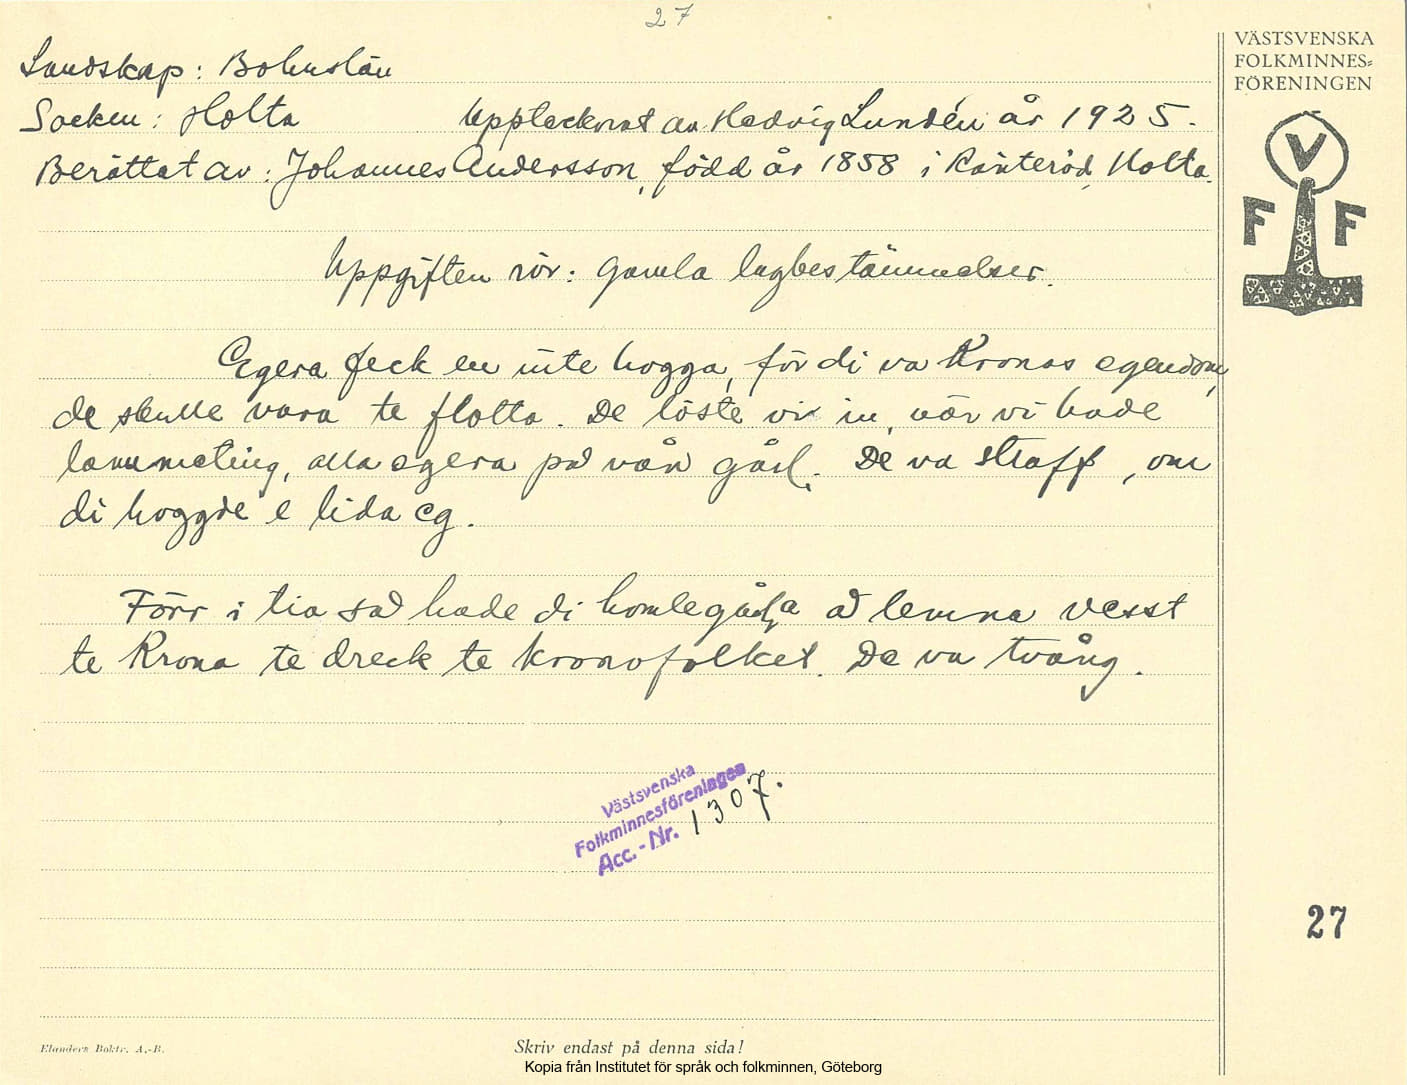 27
Landskap: Bohuslän
Socken: Holta Upptecknat av Hedvig Lundén år 1925.
Berättat av: Johannes Andersson, född år 1858 i Ränteröd, Holta.
Uppgiften rör: gamla lagbestämmelser.
Egera feck en inte hogga, för di va Kronas egendom,
de skulle vara te flotta. De löste vi in, när vi hade
lannmäting, alla egera på vån gål. De va straff, om
di hoggde e lida eg.
Förr i tia så hade di homlegåla å lemna vesst
te Krona te dreck te kronofolket. De va tvång.
Västsvenska
Folkminnesföreningen
Acc.-Nr. 1307.
VÄSTSVENSKA
FOLKMINNES=
FÖRENINGEN
V
F F
27
Elanders Boktr. A.-B.
Skriv endast på denna sida!
Kopia från Institutet för språk och folkminnen, Göteborg